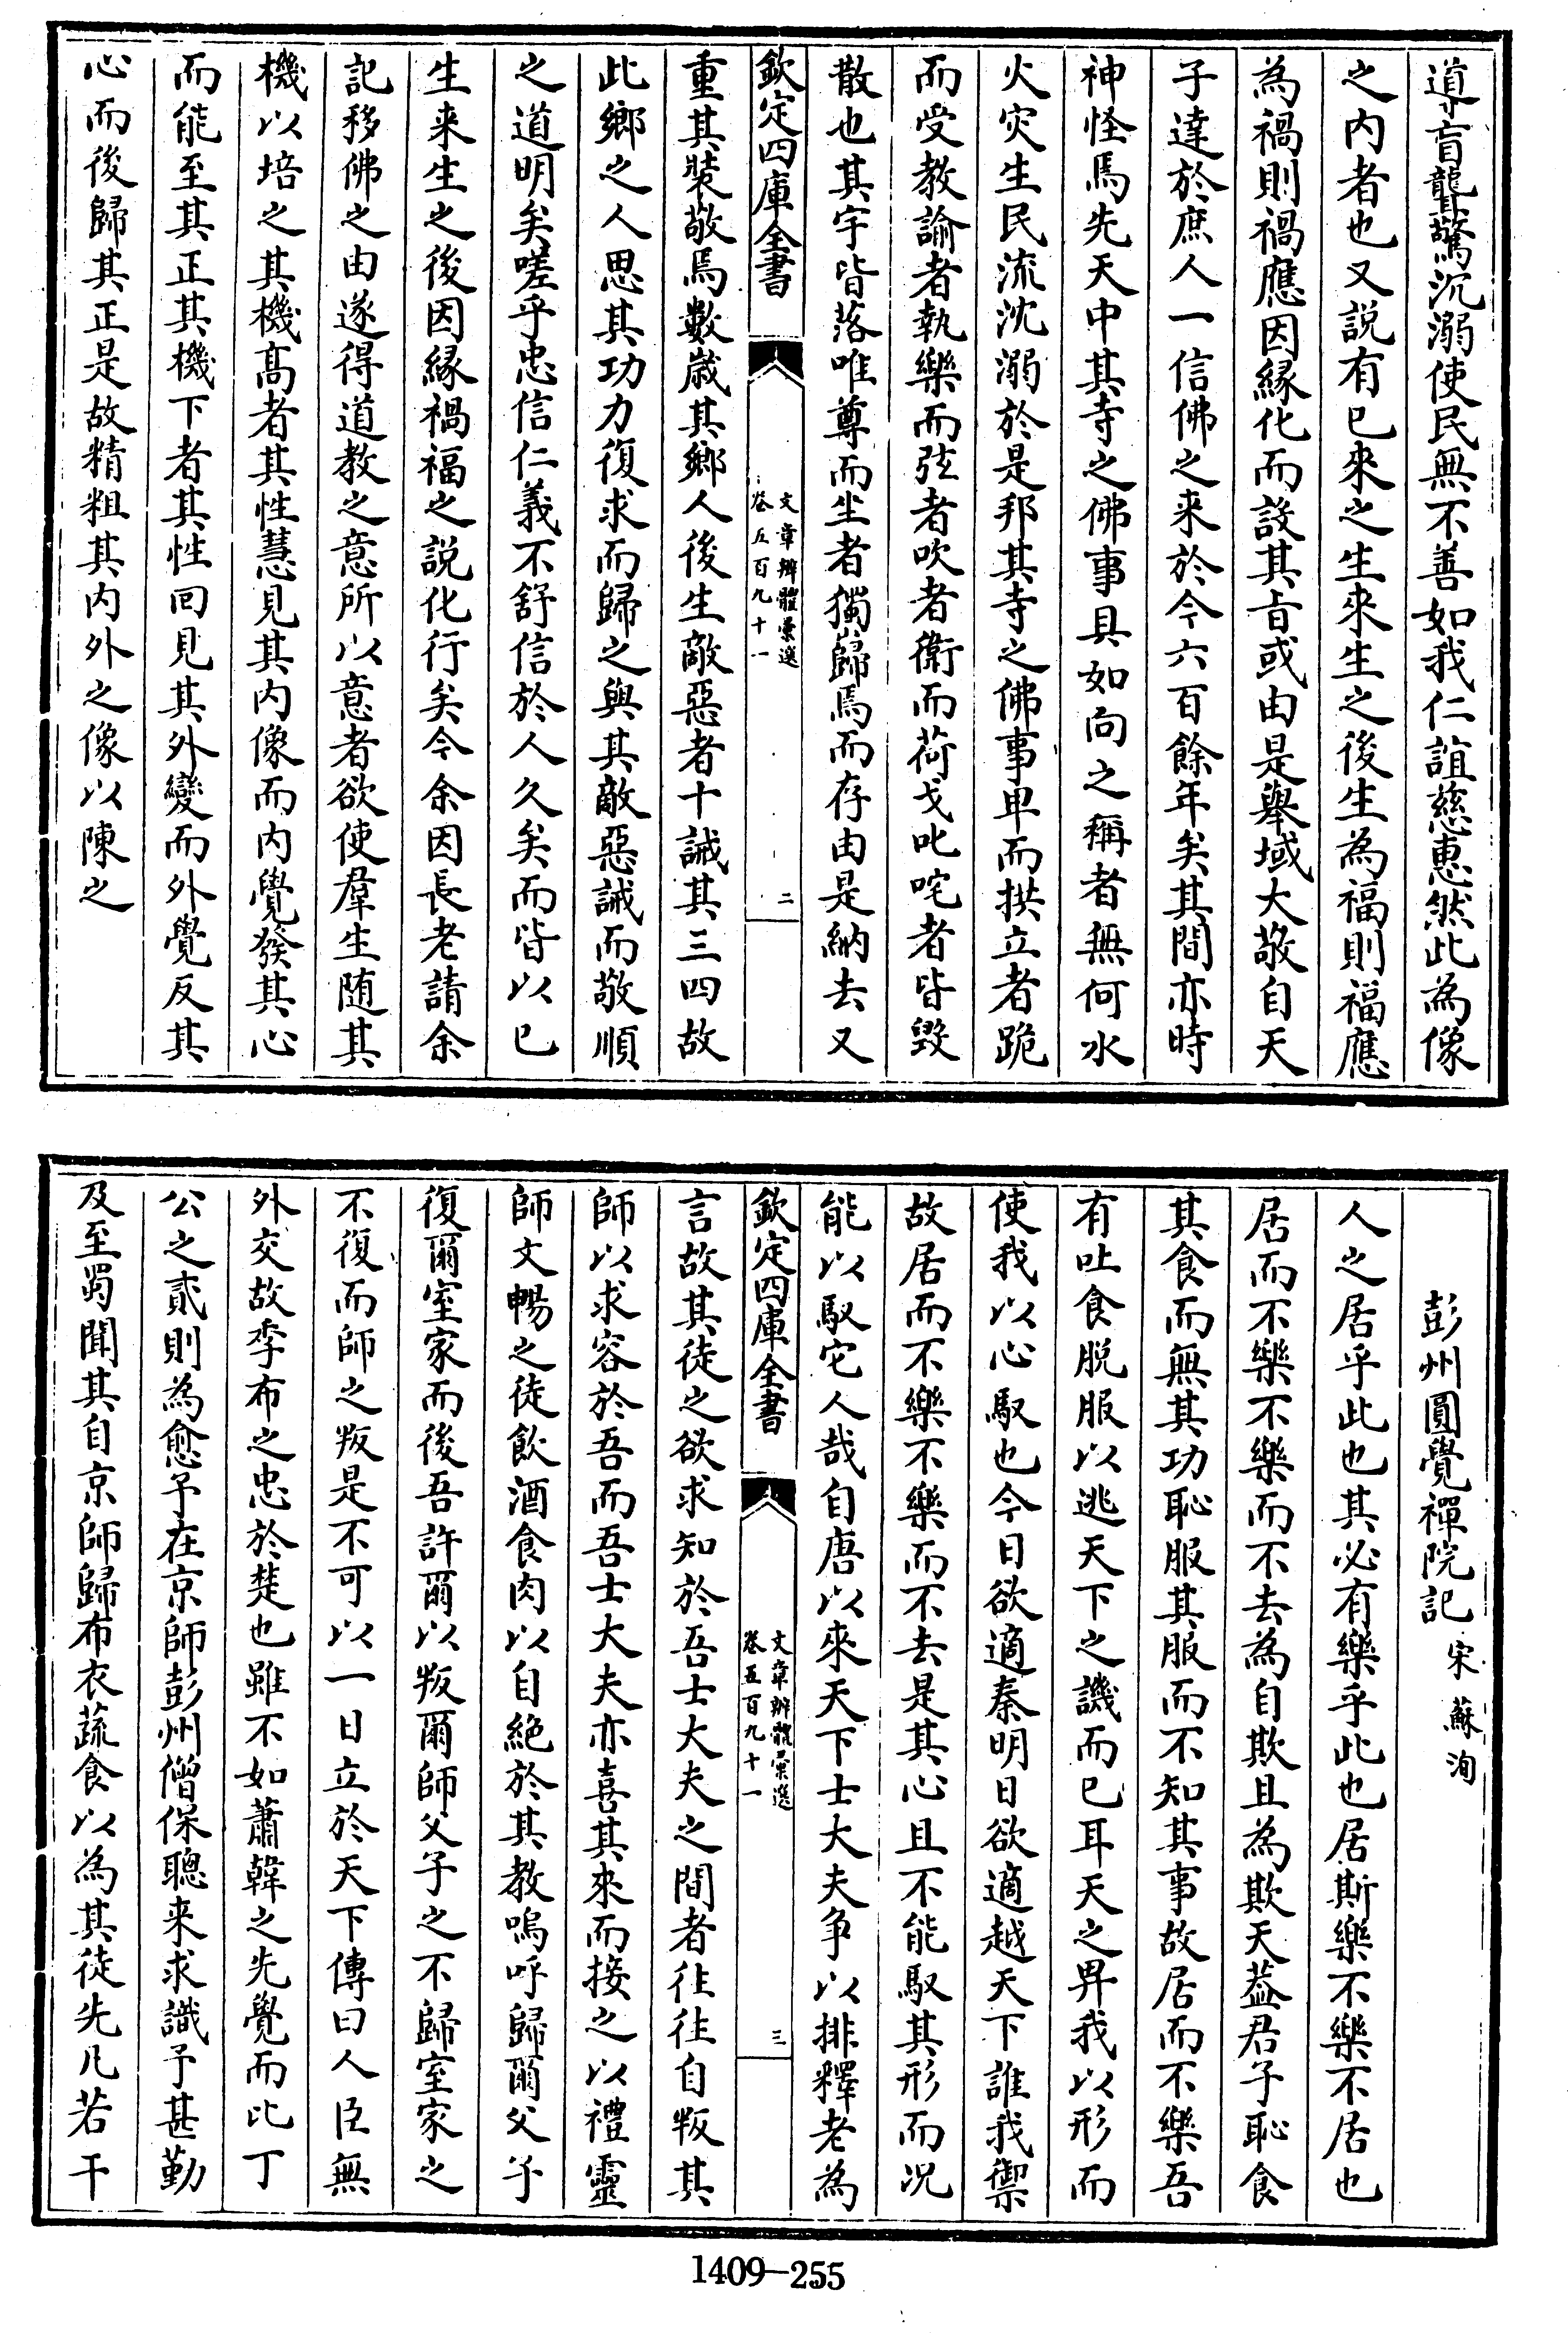 導盲聾驚沉溺使民無不善如我仁誼慈惠然此為像
之内者也又説有已來之生來生之後生為福則福應
為禍則禍應因縁化而設其㫖或由是舉域大敬自天
子達於庶人一信佛之来於今六百餘年矣其間亦時
神怪焉先天中其寺之佛事具如向之稱者無何水
火灾生民流沈溺於是邦其寺之佛事卑而拱立者跪
而受教諭者執樂而弦者吹者衛而荷戈叱咤者皆毀
散也其宇皆落唯尊而坐者獨歸焉而存由是納去又
欽定四庫全書
文章辨體彚選
卷五百九十一
二
重其裝敬焉數歳其鄉人後生敵惡者十誡其三四故
此鄉之人思其功力復求而歸之與其敵惡誡而敬順
之道明矣嗟乎忠信仁義不舒信於人久矣而皆以已
生来生之後因縁禍福之説化行矣今余因長老請余
記移佛之由遂得道教之意所以意者欲使羣生随其
機以培之其機髙者其性慧見其内像而内覺發其心
而能至其正其機下者其性囘見其外變而外覺反其
心而後歸其正是故精粗其内外之像以陳之
彭州圓覺禪院記 宋蘇洵
人之居乎此也其必有樂乎此也居斯樂不樂不居也
居而不樂不樂而不去為自欺且為欺天葢君子恥食
其食而無其功恥服其服而不知其事故居而不樂吾
有吐食脱服以逃天下之譏而已耳天之畀我以形而
使我以心馭也今日欲適秦明日欲適越天下誰我禦
故居而不樂不樂而不去是其心且不能馭其形而况
能以馭它人哉自唐以來天下士大夫争以排釋老為
欽定四庫全書
文章辨體彚選
卷五百九十一
三
言故其徒之欲求知於吾士大夫之間者往往自叛其
師以求容於吾而吾士大夫亦喜其來而接之以禮靈
師文暢之徒飲酒食肉以自絶於其教嗚呼歸爾父子
復爾室家而後吾許爾以叛爾師父子之不歸室家之
不復而師之叛是不可以一日立於天下傳曰人臣無
外交故季布之忠於楚也雖不如蕭韓之先覺而比丁
公之貳則為愈予在京師彭州僧保聰来求識予甚勤
及至蜀聞其自京師歸布衣蔬食以為其徒先凡若干
1409—255